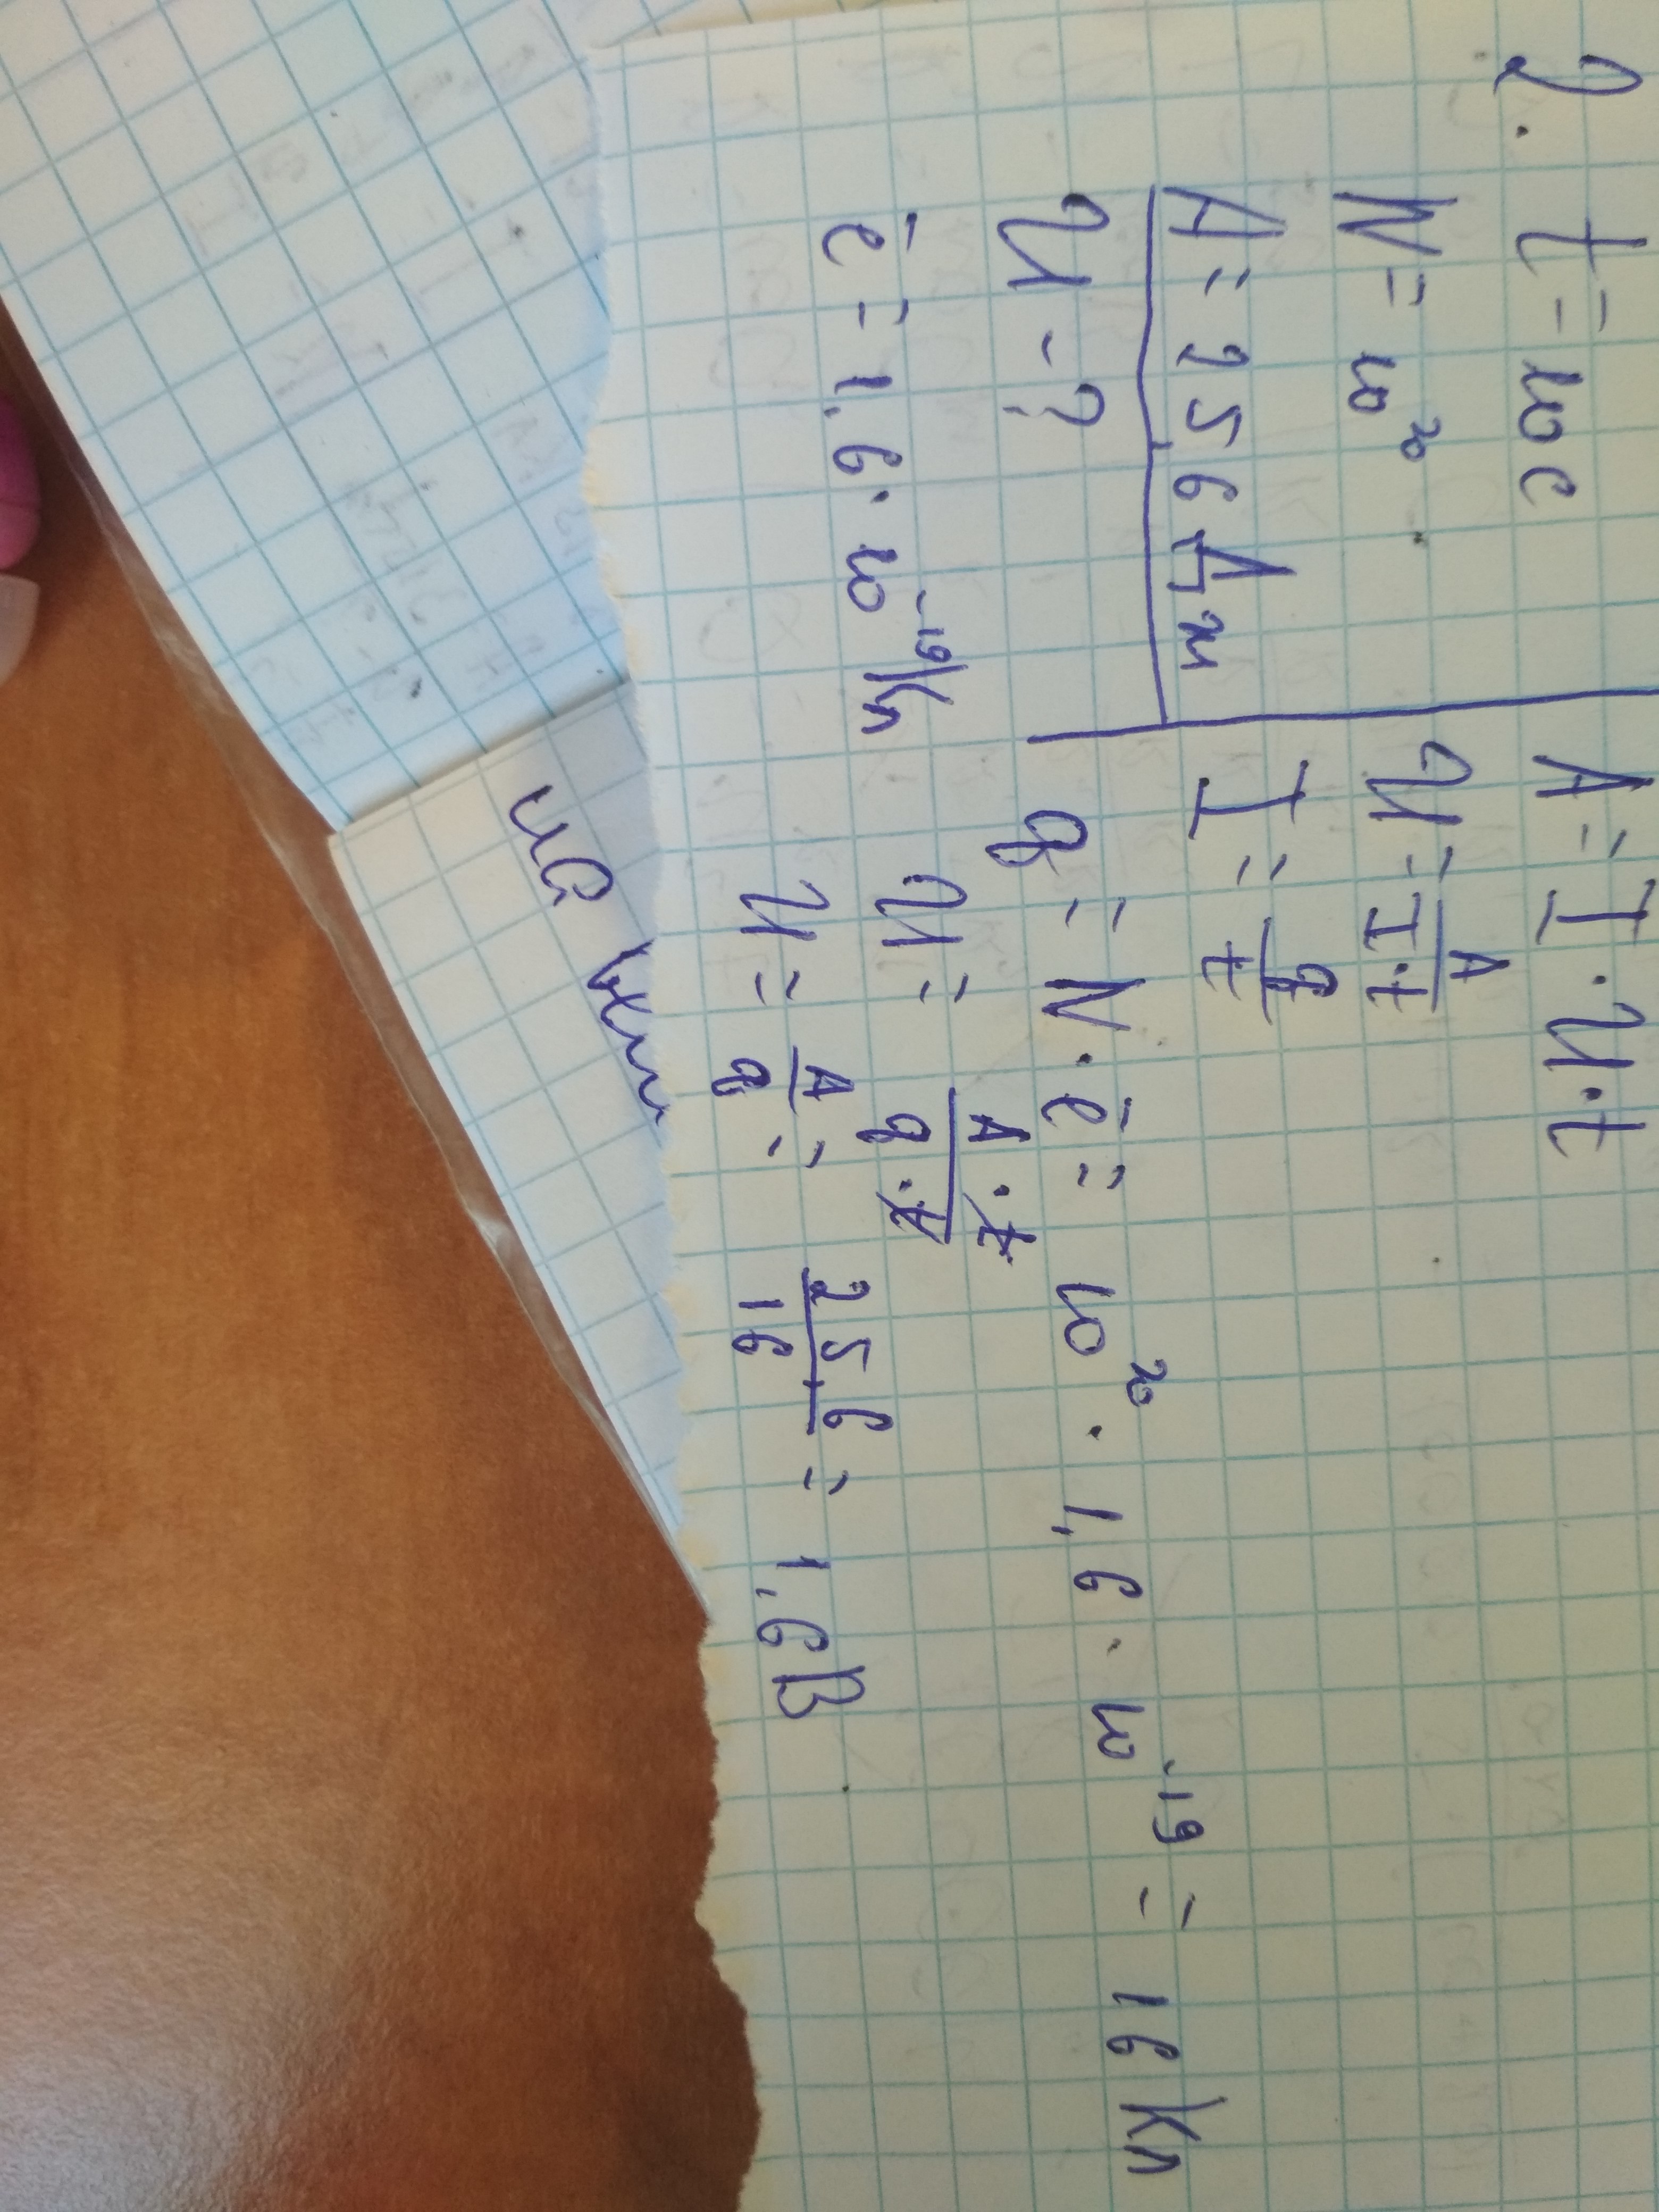 2. t = 10 c
N = 10²⁰
A = 256 Дж
U - ?
e̅ = 1,6 · 10⁻¹⁹ Кл
A = I · U · t
U = A / I · t
I = q / t
q = N · e̅ = 10²⁰ · 1,6 · 10⁻¹⁹ = 16 Кл
U = A · t / q · t
U = A / q = 256 / 16 = 1,6 В